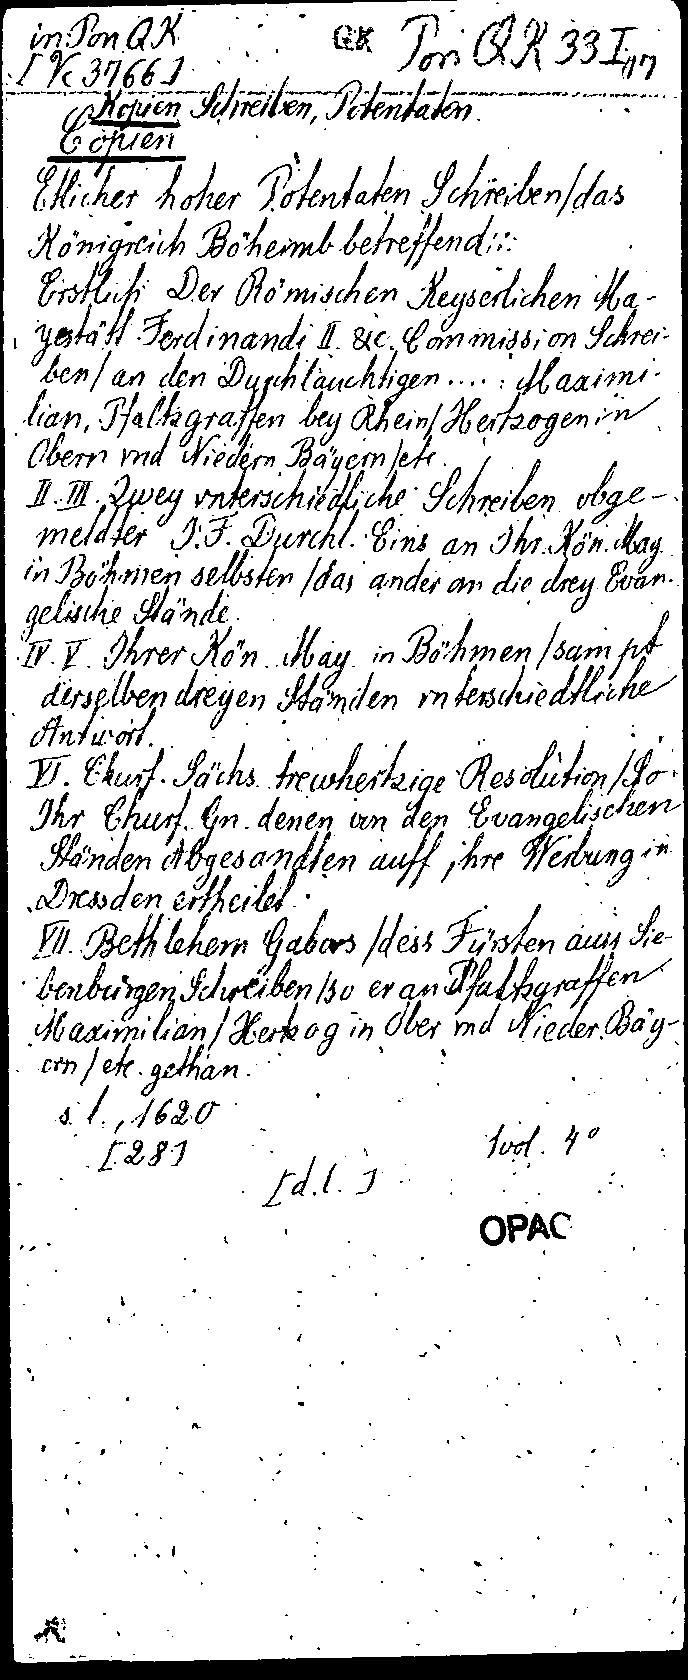 in: Pon QK
QK Pon QK 33 I, 17
[Vc 3766]
Kopien Schreiben, Potentaten.
Copien
Etlicher hoher Potentaten Schreiben/das
Königreich Böheimb betreffend:::
Erstlich Der Römischen Keyserlichen Ma-
yestätt Ferdinandi II. &c. Commission Schrei-
ben/ an den Durchläuchtigen....: Maximi-
lian, Pfaltzgraffen bey Rhein/ Hertzogen in
Obern vnd Niedern Bäyern/etc.
II. III. Zwey vnterschiedliche Schreiben obge-
meldter J. F. Durchl. Eins an Ihr. Kön. May.
in Böhmen selbsten/das ander an die drey Evan-
gelische Stände.
IV. V. Ihrer Kön. May. in Böhmen/sampt
derselben dreyen Ständen vnterschiedtliche
Antwort.
VI. Churf. Sächs. trewhertzige Resolution/So
Ihr Churf. Gn. denen von den Evangelischen
Ständen Abgesandten auff ihre Werbung in
Dressden ertheilet.
VII. Bethlehem Gabors/dess Fürsten auss Sie-
benbürgen Schreiben/so er an Pfaltzgraffen
Maximilian/ Hertzog in Ober vnd Nieder Bäy-
ern/etc. gethan.
s. l., 1620
[28] 1 vol. 4°
[d. l.]
OPAC